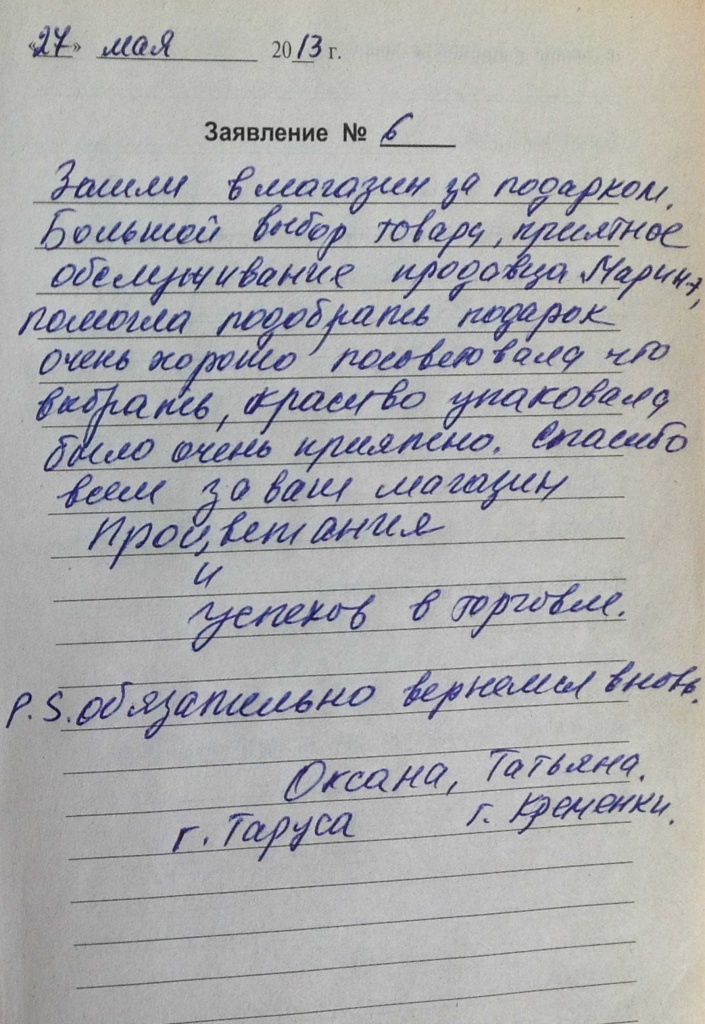 «27» мая 2013 г.
Заявление № 6
Зашли в магазин за подарком.
Большой выбор товара, приятное
обслуживание продавца Марина,
помогла подобрать подарок
очень хорошо посоветовала что
выбрать, красиво упаковала
было очень приятно. Спасибо
всем за ваш магазин
Процветания
и
успехов в торговле.
P.S. обязательно вернемся вновь.
Оксана, Татьяна.
г. Таруса г. Кременки.